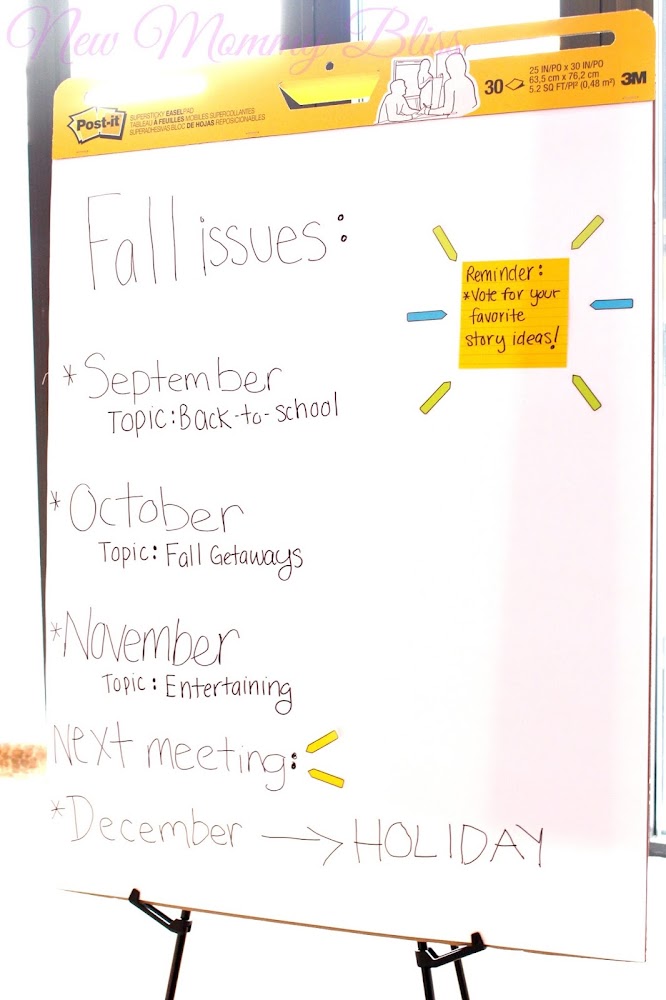 New Mommy Bliss
Post-it
SUPERSTICKY EASEL PAD
TABLEAU À FEUILLES MOBILES SUPERCOLLANTES
SUPERADHESIVAS BLOC DE HOJAS REPOSICIONABLES
30
25 IN/PO x 30 IN/PO
63,5 cm x 76,2 cm
5.2 SQ FT/PI² (0,48 m²)
3M
Fall issues:
Reminder:
*Vote for your
favorite
story ideas!
* September
Topic: Back-to-school
* October
Topic: Fall Getaways
*November
Topic: Entertaining
Next meeting:
*December → HOLIDAY